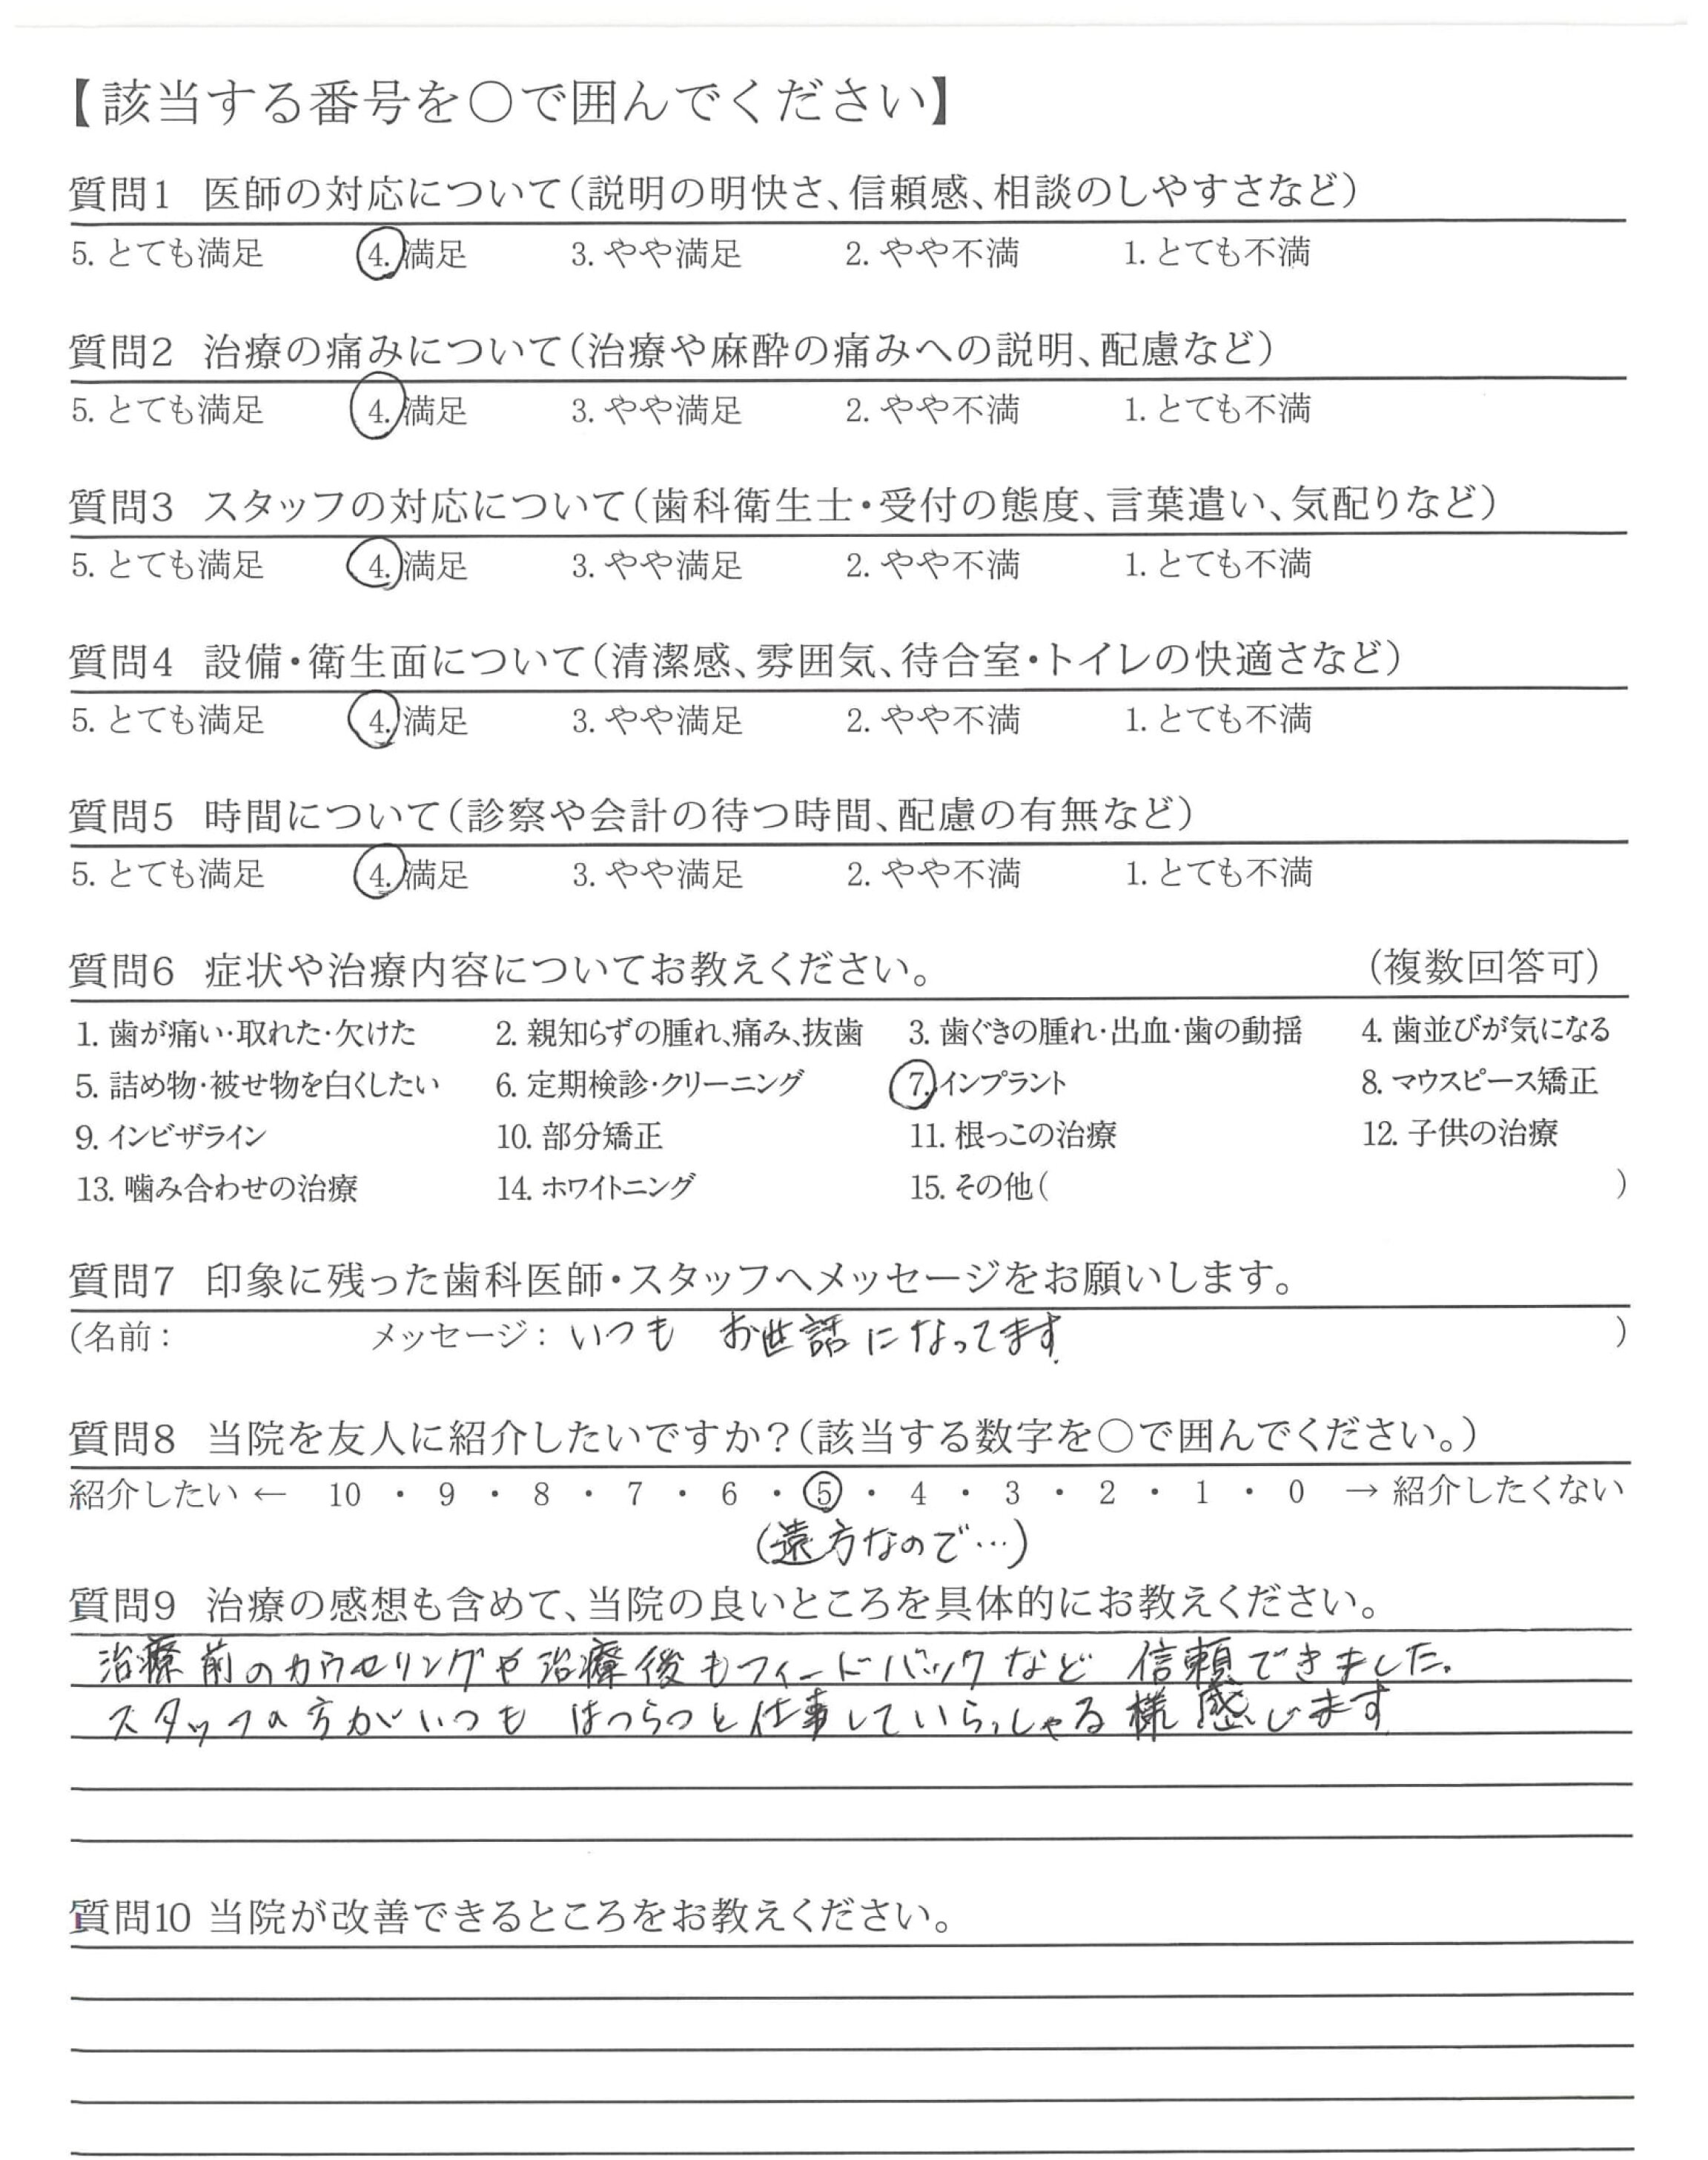 【該当する番号を○で囲んでください】
質問1 医師の対応について(説明の明快さ、信頼感、相談のしやすさなど)
5. とても満足 4. 満足 3. やや満足 2. やや不満 1. とても不満
質問2 治療の痛みについて(治療や麻酔の痛みへの説明、配慮など)
5. とても満足 4. 満足 3. やや満足 2. やや不満 1. とても不満
質問3 スタッフの対応について(歯科衛生士・受付の態度、言葉遣い、気配りなど)
5. とても満足 4. 満足 3. やや満足 2. やや不満 1. とても不満
質問4 設備・衛生面について(清潔感、雰囲気、待合室・トイレの快適さなど)
5. とても満足 4. 満足 3. やや満足 2. やや不満 1. とても不満
質問5 時間について(診察や会計の待つ時間、配慮の有無など)
5. とても満足 4. 満足 3. やや満足 2. やや不満 1. とても不満
質問6 症状や治療内容についてお教えください。 (複数回答可)
1. 歯が痛い・取れた・欠けた 2. 親知らずの腫れ、痛み、抜歯 3. 歯ぐきの腫れ・出血・歯の動揺 4. 歯並びが気になる
5. 詰め物・被せ物を白くしたい 6. 定期検診・クリーニング 7. インプラント 8. マウスピース矯正
9. インビザライン 10. 部分矯正 11. 根っこの治療 12. 子供の治療
13. 噛み合わせの治療 14. ホワイトニング 15. その他( )
質問7 印象に残った歯科医師・スタッフへメッセージをお願いします。
(名前: メッセージ: いつも お世話になってます. )
質問8 当院を友人に紹介したいですか?(該当する数字を○で囲んでください。)
紹介したい ← 10 ・ 9 ・ 8 ・ 7 ・ 6 ・ 5 ・ 4 ・ 3 ・ 2 ・ 1 ・ 0 → 紹介したくない
(遠方なので…)
質問9 治療の感想も含めて、当院の良いところを具体的にお教えください。
治療前のカウセリングや治療後もフィードバックなど 信頼できました.
スタッフの方がいつも はつらつと仕事していらっしゃる様 感じます
質問10 当院が改善できるところをお教えください。